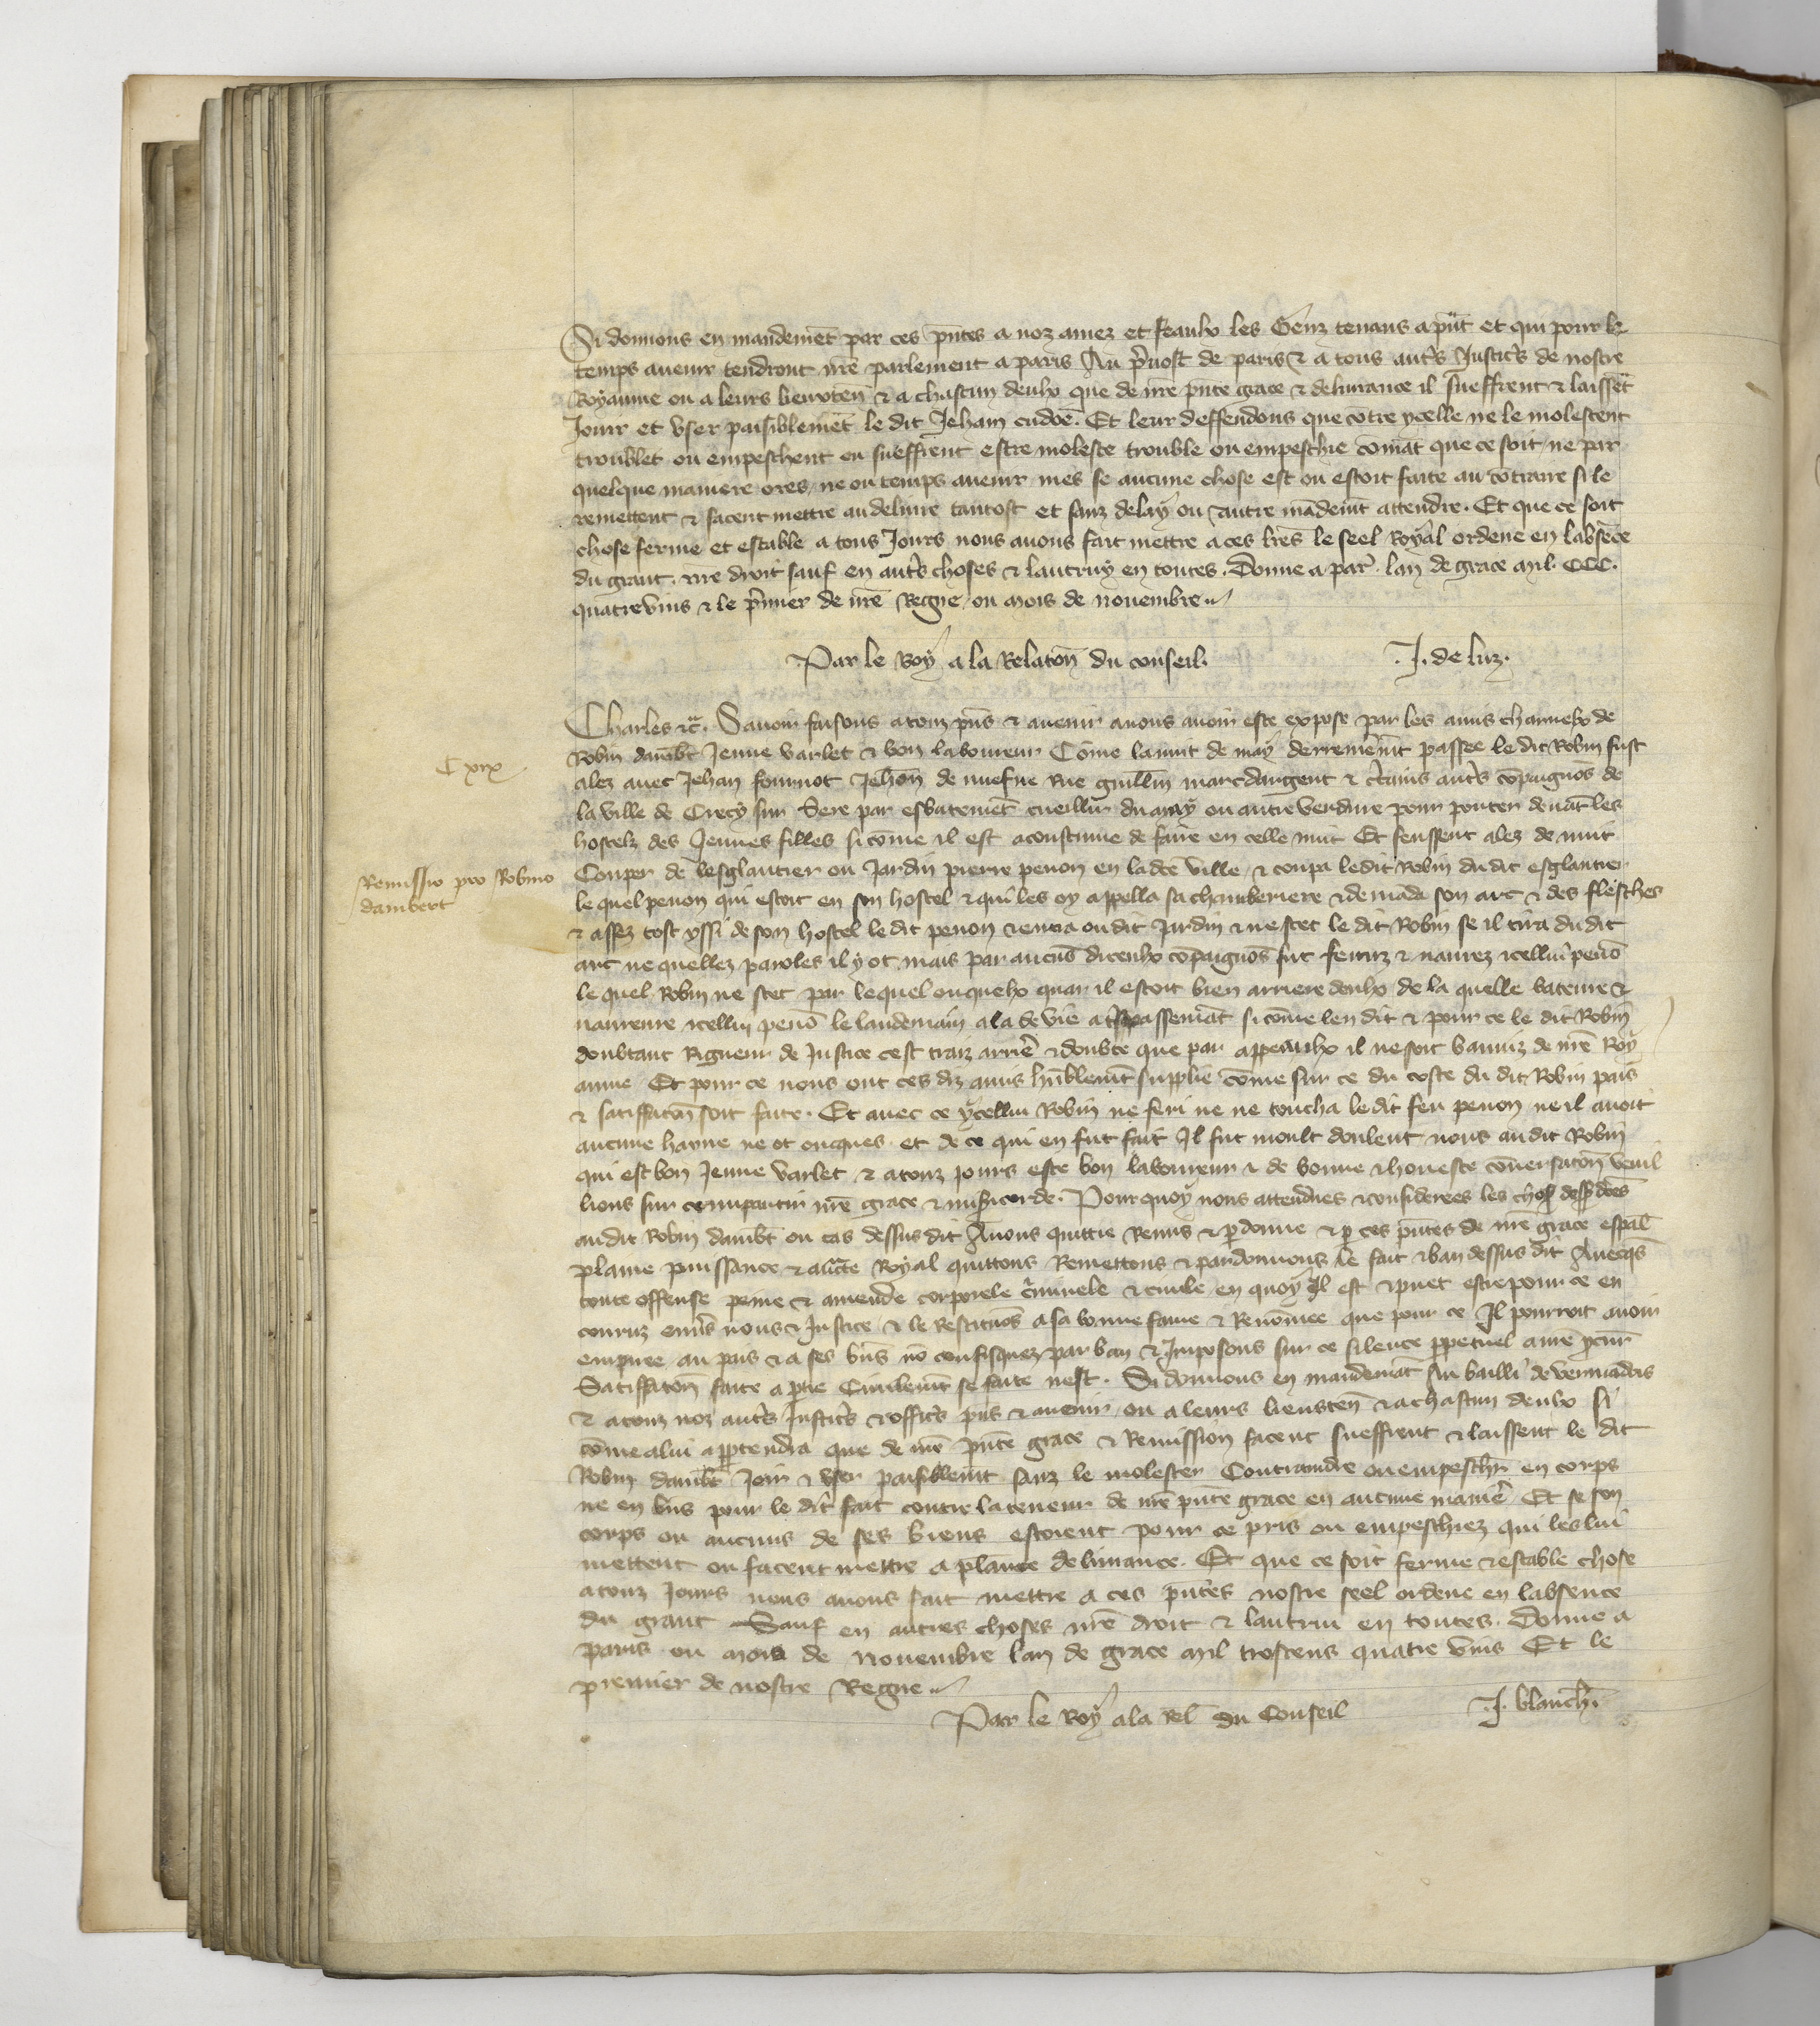 Si donnons en mandemēt par ces pn̄tes a noz amez et feaulx les Genz tenans a pn̄t et qui pour le
temps auenir tendront nr̄e parlement a paris Au p̄uost de paris & a tous aut̄s Justic̄s de nostre
Royaume ou a leurs lieuxten̄ & a chascun deulx que de nr̄e pn̄te grace & deliurance il sueffrent & laissēt
Jouir et vser paisiblemēt le dit Jehan cudoe. Et leur deffendons que cōtre ycelle ne le molestent
troublet ou empeschent ou sueffrent estre moleste trouble ou empeschie cōmāt que ce soit ne par
quelque maniere ores ne ou temps auenir mes se aucune chose est ou estoit faite au cōtraire si le
remettent & facent mettre au deliure tantost et sanz delay ou autre mādemt̄ attendre. Et que ce soit
chose ferme et estable a tous Jours nous auons fait mettre a ces lr̄es le seel Royal ordene en labsēce
du grant. nr̄e droit sauf en aut̄s choses & lautruy en toutes. Donne a par̄. lan de grace mil. CCC.
quatrevins & le p̄mier de nr̄e Regne, ou mois de nouembre
Par le Roy a la Relatōn du conseil. .J. de luz.
Charles &c̄. Sauoir faisons a touz pn̄s & auenir auons auoir este expose par les amis charnelx de
C xix
Robin daub̄t Jeune varlet & bon laboureur Cōme la nuit de may derreniemt̄ passee le dit Robin fust
alez auec Jehan fournot Jehan de nuefue Rue guillm̄ marcdargent & c̄tains aut̄s cōpaignōs de
la ville de Crecy sur Sere par esbatemēt cueillir du may ou autre verdure pour porter deuāt les
hostelz des Jeunes filles si cōme il est acoustume de faire en celle nuit Et feussent alez de nuit
Remissio pro Robino
dambert
Couper de lesglantier ou Jardin pierre penon en lad̄te ville & coupa ledit Robin du dit esglantier
le quel penon qui estoit en son hostel & qui les oy appella sa chamberiere & demāda son arc & des flesches
& assez tost yssi de son hostel le dit penon & entra ou dit Jardin & ne scet le dit Robin se il tira du dit
arc ne quellez paroles il y ot mais par aucūs diceulx cōpaignōs fut feruz & naurez icellui penō
le quel Robin ne scet par lequel ou quelx quar il estoit bien arriere deulx de la quelle bateure &
naureure icellui penō le landemain ala de vie a trespassemāt si cōme len dit & pour ce le dit Robin
doubtant Rigueur de Justice cest traiz arrie᷑ & doubte que par appeaulx il ne soit banniz de nr̄e Roy
aume Et pour ce nous ont ces diz amis hūblemt̄ supplie cōme sur ce du coste du dit Robin pais
& satiffatōn soit faite. Et auec ce ycellui Robin ne feri ne ne toucha le dit feu penon ne il auoit
aucune hayne ne ot onques et de ce qui en fut fait Il fut moult doulent nous au dit Robin
qui est bon Jeune varlet & a touz jours este bon laboureur & de bonne & honeste cōuersatōn vueil
lions sur ce impartir nr̄e grace & misericorde. Pour quoy nous attendues & considerees les choses dess̄ dc̄es
au dit Robin daub̄t ou cas dessus dit Auons quittie Remis & p̄donne & p̄ ces pn̄tes de nr̄e grace espāl
plaine puissance & auct̄e Royal quittons Remettons & pardonnons le fait & ban dessus dit Auecq̄s
toute offense peine & amende corporele c̄minele & ciuile en quoy Il est & puet estre pour ce en
couruz enu᷑s nous & Justice & le Restituōs a sa bonne fame & Renōmee que pour ce Il pourroit auoir
empiree au pais & a ses biēs nō confisquez par ban & Imposons sur ce silence ppetuel a nr̄e pcur̄
Satiffatōn faite a p̄tie Ciuilemt̄ se faite nest. Si donnons en mandemāt Au bailli de vermādois
& a touz noz aut̄s Justic̄s & offic̄s pn̄s & auenir ou a leurs lieuxten̄ & a chascun deulx si
cōme a lui app̄tendra que de nr̄e pn̄te grace & Remission facent sueffrent & laissent le dit
Robin daub̄t Joir & vser paisiblemt̄ sanz le molester Contraindre ou empeschr̄ en corps
ne en biēs pour le dit fait contre la teneur de nr̄e pn̄te grace en aucune manie᷑ Et se son
corps ou aucuns de ses biens estoient pour ce pris ou empeschiez qui les lui
mettent ou facent mettre a plaine deliurance. Et que ce soit ferme & estable chose
a touz Jours nous auons fait mettre a ces pn̄tes nostre seel ordene en labsence
du grant Sauf en autres choses nr̄e droit & lautrui en toutes. Donne a
paris ou mois de nouembre lan de grace mil troiscens quatre vins Et le
premier de nostre Regne
Par le Roy a la rel̄ du Conseil .J. blanch̄.